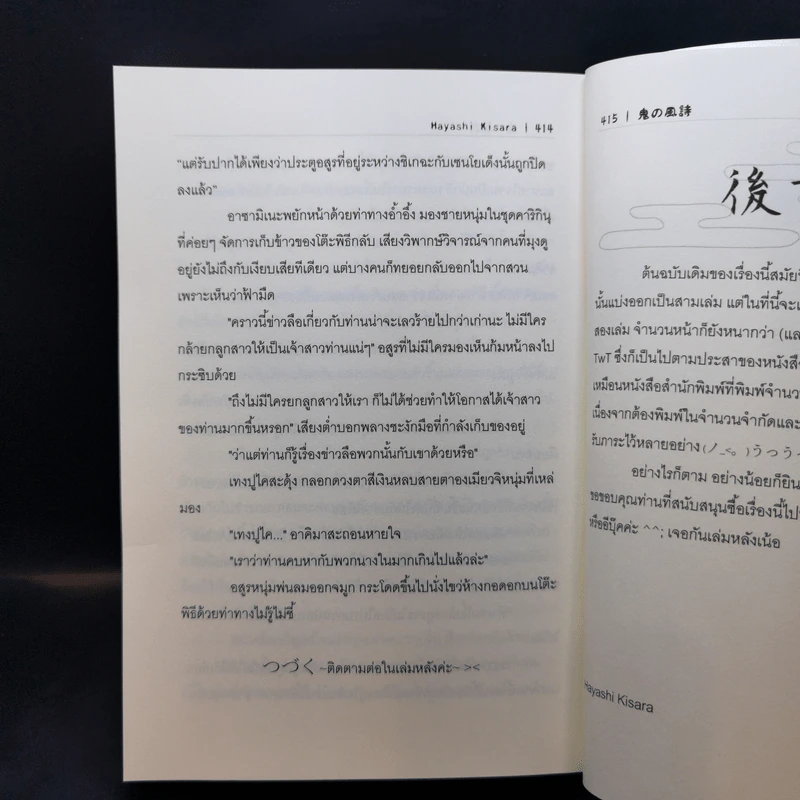 Hayashi Kisara | 414
"แต่รับปากได้เพียงว่าประตูอสูรที่อยู่ระหว่างชิเกฉะกับเซนโยเด็งนั้นถูกปิด
ลงแล้ว"
อาซามิเนะพยักหน้าด้วยท่าทางอ้ำอึ้ง มองชายหนุ่มในชุดคาริกินุ
ที่ค่อยๆ จัดการเก็บข้าวของโต๊ะพิธีกลับ เสียงวิพากษ์วิจารณ์จากคนที่มุงดู
อยู่ยังไม่ถึงกับเงียบเสียทีเดียว แต่บางคนก็ทยอยกลับออกไปจากสวน
เพราะเห็นว่าฟ้ามืด
"คราวนี้ข่าวลือเกี่ยวกับท่านน่าจะเลวร้ายไปกว่าเก่านะ ไม่มีใคร
กล้ายกลูกสาวให้เป็นเจ้าสาวท่านแน่ๆ" อสูรที่ไม่มีใครมองเห็นก้มหน้าลงไป
กระซิบด้วย
"ถึงไม่มีใครยกลูกสาวให้เรา ก็ไม่ได้ช่วยทำให้โอกาสได้เจ้าสาว
ของท่านมากขึ้นหรอก" เสียงต่ำบอกพลางชะงักมือที่กำลังเก็บของอยู่
"ว่าแต่ท่านก็รู้เรื่องข่าวลือพวกนั้นกับเขาด้วยหรือ"
เทงปูไคสะดุ้ง กลอกดวงตาสีเงินหลบสายตาองเมียวจิหนุ่มที่เหล่
มอง
"เทงปูไค..." อาคิมาสะถอนหายใจ
"เราว่าท่านคบหากับพวกนางในมากเกินไปแล้วล่ะ"
อสูรหนุ่มพ่นลมออกจมูก กระโดดขึ้นไปนั่งไขว่ห้างกอดอกบนโต๊ะ
พิธีด้วยท่าทางไม่รู้ไม่ชี้
つづく ~ติดตามต่อในเล่มหลังค่ะ~ ><
415 | 鬼の風詩
後
ต้นฉบับเดิมของเรื่องนี้สมัย
นั้นแบ่งออกเป็นสามเล่ม แต่ในที่นี้จะ
สองเล่ม จำนวนหน้าก็ยังหนากว่า (แล
TwT ซึ่งก็เป็นไปตามประสาของหนังสือ
เหมือนหนังสือสำนักพิมพ์ที่พิมพ์จำนวน
เนื่องจากต้องพิมพ์ในจำนวนจำกัดและ
รับภาระไว้หลายอย่าง
อย่างไรก็ตาม อย่างน้อยก็ยิน
ขอขอบคุณท่านที่สนับสนุนซื้อเรื่องนี้ไป
หรืออีบุ๊คค่ะ ^^; เจอกันเล่มหลังเน้อ
Hayashi Kisara